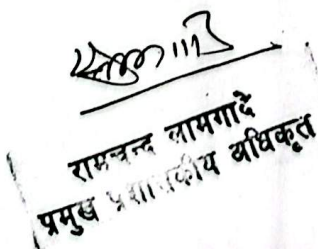 रामचन्द्र लामगादे
प्रमुख प्रशासकीय अधिकृत